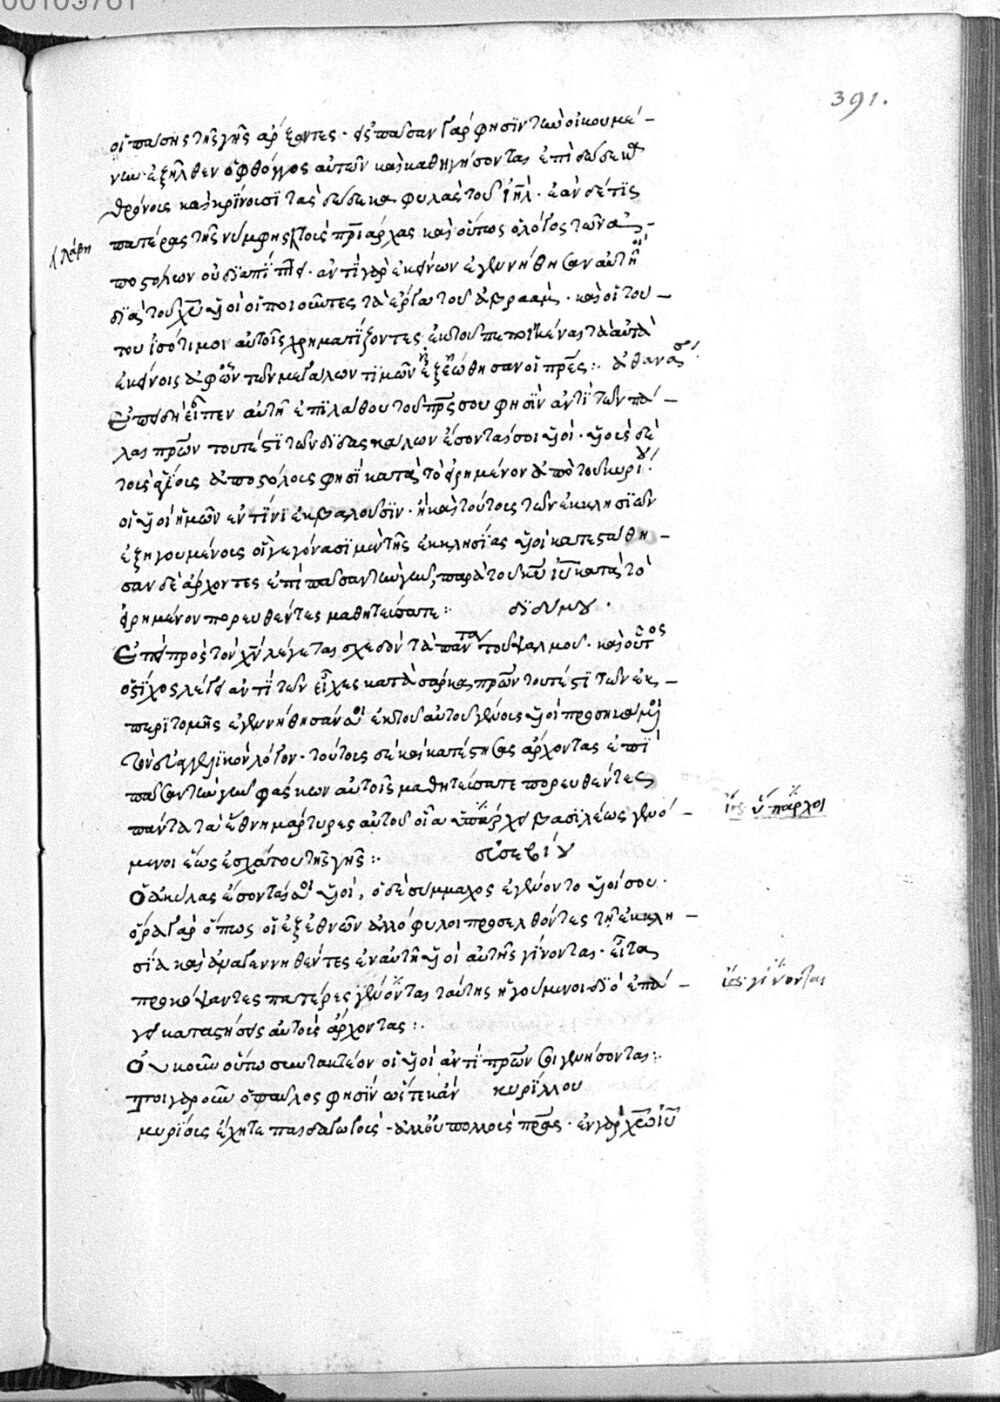 391.
οἱ πάσης τῆς γῆς ἄρξοντες· εἰς πᾶσαν γάρ φησιν τὴν οἰκουμέ-
νην ἐξῆλθεν ὁ φθόγγος αὐτῶν καὶ καθηγήσονται ἐπὶ δώδεκα
θρόνοις καὶ κρίνουσι τὰς δώδεκα φυλὰς τοῦ ἰηλ· ἐὰν δέ τις
πατέρας τῆς νύμφης τοὺς πριάρχας καὶ οὕτως ὁ λόγος τῶν ἀ-
ποστόλων οὐ διαπίπτει· ἀντὶ γὰρ ἐκείνων ἐγεννήθησαν αὐτῇ
λάβη
διὰ τοῦ χυ υἱοὶ οἱ ποιοῦντες τὰ ἔργα τοῦ ἀβραάμ· καὶ οἱ του-
του ἰσότιμοι αὐτοῖς χρηματίζοντες ἐκ τοῦ πεποιηκέναι τὰ αὐτὰ
ἐκείνοις ἀφ' ὧν τῶν μεγάλων τιμῶν ἠξιώθησαν οἱ πρες:· ἀθανασ
Ἐπειδὴ εἶπεν αὐτῇ ἐπιλάθου τοῦ πρς σου φησὶν ἀντὶ τῶν πά-
λαι πρων τουτέστι τῶν διδασκάλων ἔσονταί σοι υἱοί· υἱοὺς δὲ
τοὺς ἁγίους ἀποστόλους φησὶ κατὰ τὸ εἰρημένον ἀπὸ τοῦ κυρίου
οἱ υἱοὶ ἡμῶν ἐν τίνι ἐκβαλοῦσιν· ἢ καὶ τούτοις τῶν ἐκκλησιῶν
ἐξηγουμένοις οἳ γεγόνασι μὲν τῆς ἐκκλησίας υἱοὶ κατεστάθη-
σαν δὲ ἄρχοντες ἐπὶ πᾶσαν τὴν γῆν, παρὰ τοῦ κυ ιυ κατὰ τὸ
εἰρημένον πορευθέντες μαθητεύσατε:· διδύμου·
Ἐπεὶ πρὸς τὸν χν λέγεται σχεδὸν τὰ πάντα τοῦ ψαλμοῦ· καὶ οὗτος
ὁ στίχος λέγει ἀντὶ τῶν εἶχες κατὰ σάρκα πρων τουτέστι τῶν ἐκ-
περιτομῆς ἐγεννήθησάν σοι ἐκ τοῦ αὐτοῦ γένους υἱοὶ προσηκάμενοι
τὸν εὐαγγελικὸν λόγον· τούτους δὲ καὶ κατέστησας ἄρχοντας ἐπὶ
πᾶσαν τὴν γῆν φάσκων αὐτοῖς μαθητεύσατε πορευθέντες
πάντα τὰ ἔθνη μάρτυρες αὐτοῦ οἷα ὕπαρχοι βασιλέως γενό-
ἴσως ὕπαρχοι
μενοι ἕως ἐσχάτου τῆς γῆς:· εὐσεβίου
Ὁ ἀκύλας ἔσονταί σοι υἱοί, ὁ δὲ σύμμαχος ἐγένοντο υἱοί σου·
ὅρα γὰρ ὅπως οἱ ἐξ ἐθνῶν ἀλλόφυλοι προσελθόντες τῇ ἐκκλη-
σίᾳ καὶ ἀναγεννηθέντες ἐν αὐτῇ υἱοὶ αὐτῆς γίνονται· εἶτα
προκόψαντες πατέρες γενοῦνται ταύτης ἡγούμενοι διὸ ἐπά-
ἴσως γίνονται
γει καταστήσεις αὐτοὺς ἄρχοντας:·
Οὐκοῦν οὕτω συντακτέον οἱ υἱοὶ ἀντὶ πρων σοι γενήσονται:·
τοιγαροῦν ὁ παῦλος φησὶν ὥστε κἂν κυρίλλου
μυρίους ἔχητε παιδαγωγοὺς - ἀλλ' οὐ πολλοὺς πρας· ἐν γὰρ χω ιυ